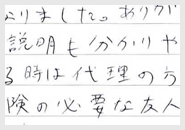 りました。ありが
説明も分かりや
る時は代理の方
険の必要な友人